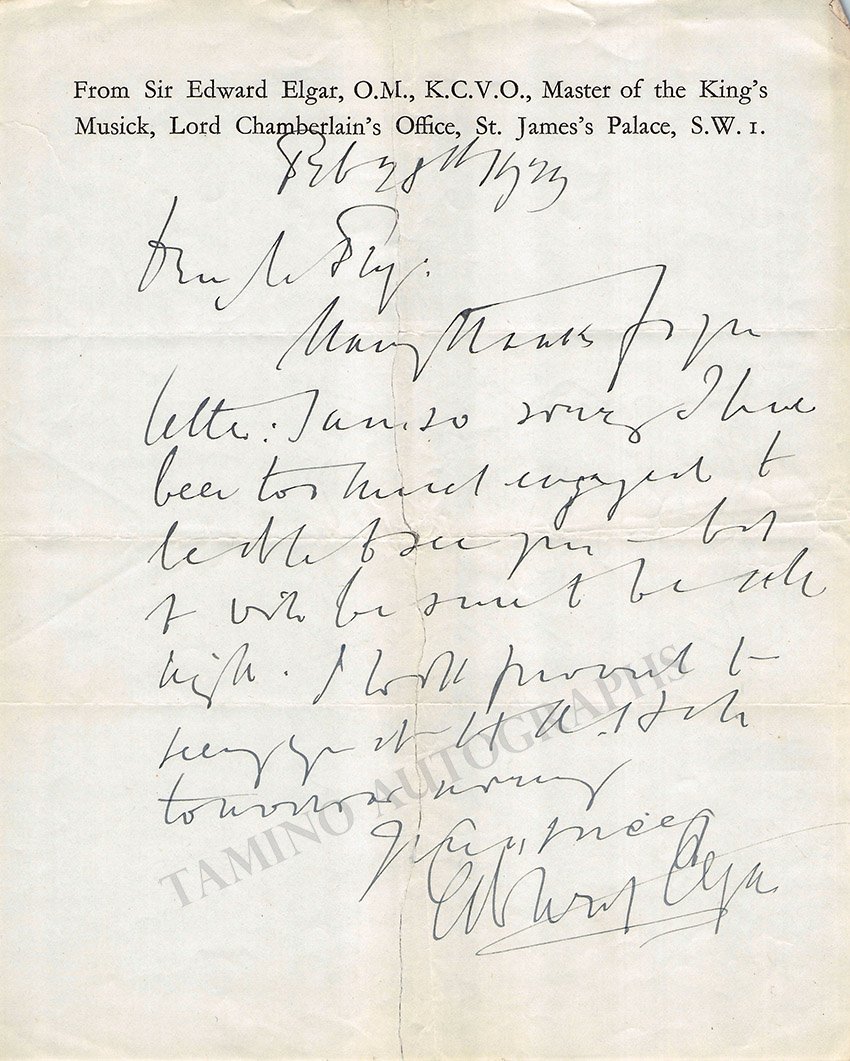 From Sir Edward Elgar, O.M., K.C.V.O., Master of the King's
Musick, Lord Chamberlain's Office, St. James's Palace, S.W. 1.
Feb 28th
Dear
Many thanks for your
letter: I am so sorry I have
been too much engaged to
be able to see you – but
it will be sure to be all
right. I look forward to
seeing you at
tomorrow morning
Yours sincerely
Edward Elgar
TAMINO AUTOGRAPHS